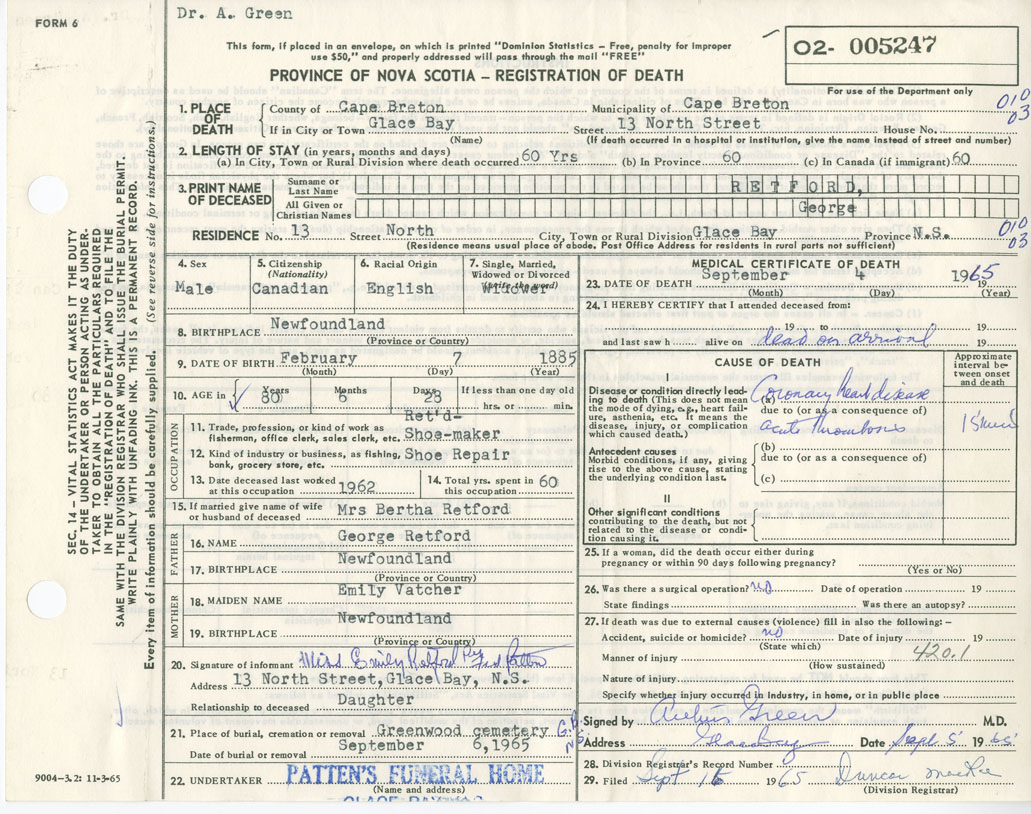 Dr. A. Green
FORM 6
This form, if placed in an envelope, on which is printed "Dominion Statistics – Free, penalty for improper
use $50," and properly addressed will pass through the mail "FREE"
PROVINCE OF NOVA SCOTIA – REGISTRATION OF DEATH
02- 005247
For use of the Department only
010
03
1. PLACE OF DEATH
County of Cape Breton Municipality of Cape Breton
If in City or Town Glace Bay Street 13 North Street House No.
(Name) (If death occurred in a hospital or institution, give the name instead of street and number)
2. LENGTH OF STAY (in years, months and days)
(a) In City, Town or Rural Division where death occurred 60 Yrs (b) In Province 60 (c) In Canada (if immigrant) 60
3. PRINT NAME OF DECEASED
Surname or Last Name RETFORD,
All Given or Christian Names George
RESIDENCE No. 13 Street North City, Town or Rural Division Glace Bay Province N.S.
(Residence means usual place of abode. Post Office Address for residents in rural parts not sufficient)
010
03
4. Sex
Male
5. Citizenship
(Nationality)
Canadian
6. Racial Origin
English
7. Single, Married,
Widowed or Divorced
8. BIRTHPLACE Newfoundland
(Province or Country)
9. DATE OF BIRTH February 7 1885
(Month) (Day) (Year)
10. AGE in Years 80 Months 6 Days 28 If less than one day old
hrs. or min.
OCCUPATION
11. Trade, profession, or kind of work as
fisherman, office clerk, sales clerk, etc. Ret'd-
Shoe-maker
12. Kind of industry or business, as fishing,
bank, grocery store, etc. Shoe Repair
13. Date deceased last worked
at this occupation 1962
14. Total yrs. spent in
this occupation 60
15. If married give name of wife
or husband of deceased Mrs Bertha Retford
FATHER
16. NAME George Retford
17. BIRTHPLACE Newfoundland
(Province or Country)
MOTHER
18. MAIDEN NAME Emily Vatcher
19. BIRTHPLACE Newfoundland
(Province or Country)
20. Signature of informant Miss Emily Retford Per Fred Patten
Address 13 North Street, Glace Bay, N.S.
Relationship to deceased Daughter
21. Place of burial, cremation or removal Greenwood cemetery G.B.
N.S.
Date of burial or removal September 6,1965
22. UNDERTAKER PATTEN'S FUNERAL HOME
(Name and address)
MEDICAL CERTIFICATE OF DEATH
23. DATE OF DEATH September 4 1965
(Month) (Day) (Year)
24. I HEREBY CERTIFY that I attended deceased from:
19 to 19
and last saw h alive on dead on arrival 19
CAUSE OF DEATH
Approximate
interval be-
tween onset
and death
I
Disease or condition directly lead-
ing to death (This does not mean
the mode of dying, e.g., heart fail-
ure, asthenia, etc. It means the
disease, injury, or complication
which caused death.)
(a) Coronary heart disease
due to (or as a consequence of)
acute thrombosis
Antecedent causes
Morbid conditions, if any, giving
rise to the above cause, stating
the underlying condition last.
(b)
due to (or as a consequence of)
(c)
II
Other significant conditions
contributing to the death, but not
related to the disease or condi-
tion causing it.
25. If a woman, did the death occur either during
pregnancy or within 90 days following pregnancy?
(Yes or No)
26. Was there a surgical operation? no Date of operation 19
State findings Was there an autopsy?
27. If death was due to external causes (violence) fill in also the following:–
Accident, suicide or homicide? no Date of injury 19
(State which)
Manner of injury 420.1
(How sustained)
Nature of injury
Specify whether injury occurred in industry, in home, or in public place
Signed by Arthur Green M.D.
Address Glace Bay Date Sept 5 1965
28. Division Registrar's Record Number
29. Filed Sept 1965 Duncan
(Division Registrar)
SEC. 14 – VITAL STATISTICS ACT MAKES IT THE DUTY
OF THE UNDERTAKER OR PERSON ACTING AS UNDER-
TAKER TO OBTAIN ALL THE PARTICULARS REQUIRED
IN THE "REGISTRATION OF DEATH" AND TO FILE THE
SAME WITH THE DIVISION REGISTRAR WHO SHALL ISSUE THE BURIAL PERMIT.
WRITE PLAINLY WITH UNFADING INK. THIS IS A PERMANENT RECORD.
Every item of information should be carefully supplied. (See reverse side for instructions.)
9004–3.2: 11-3-65